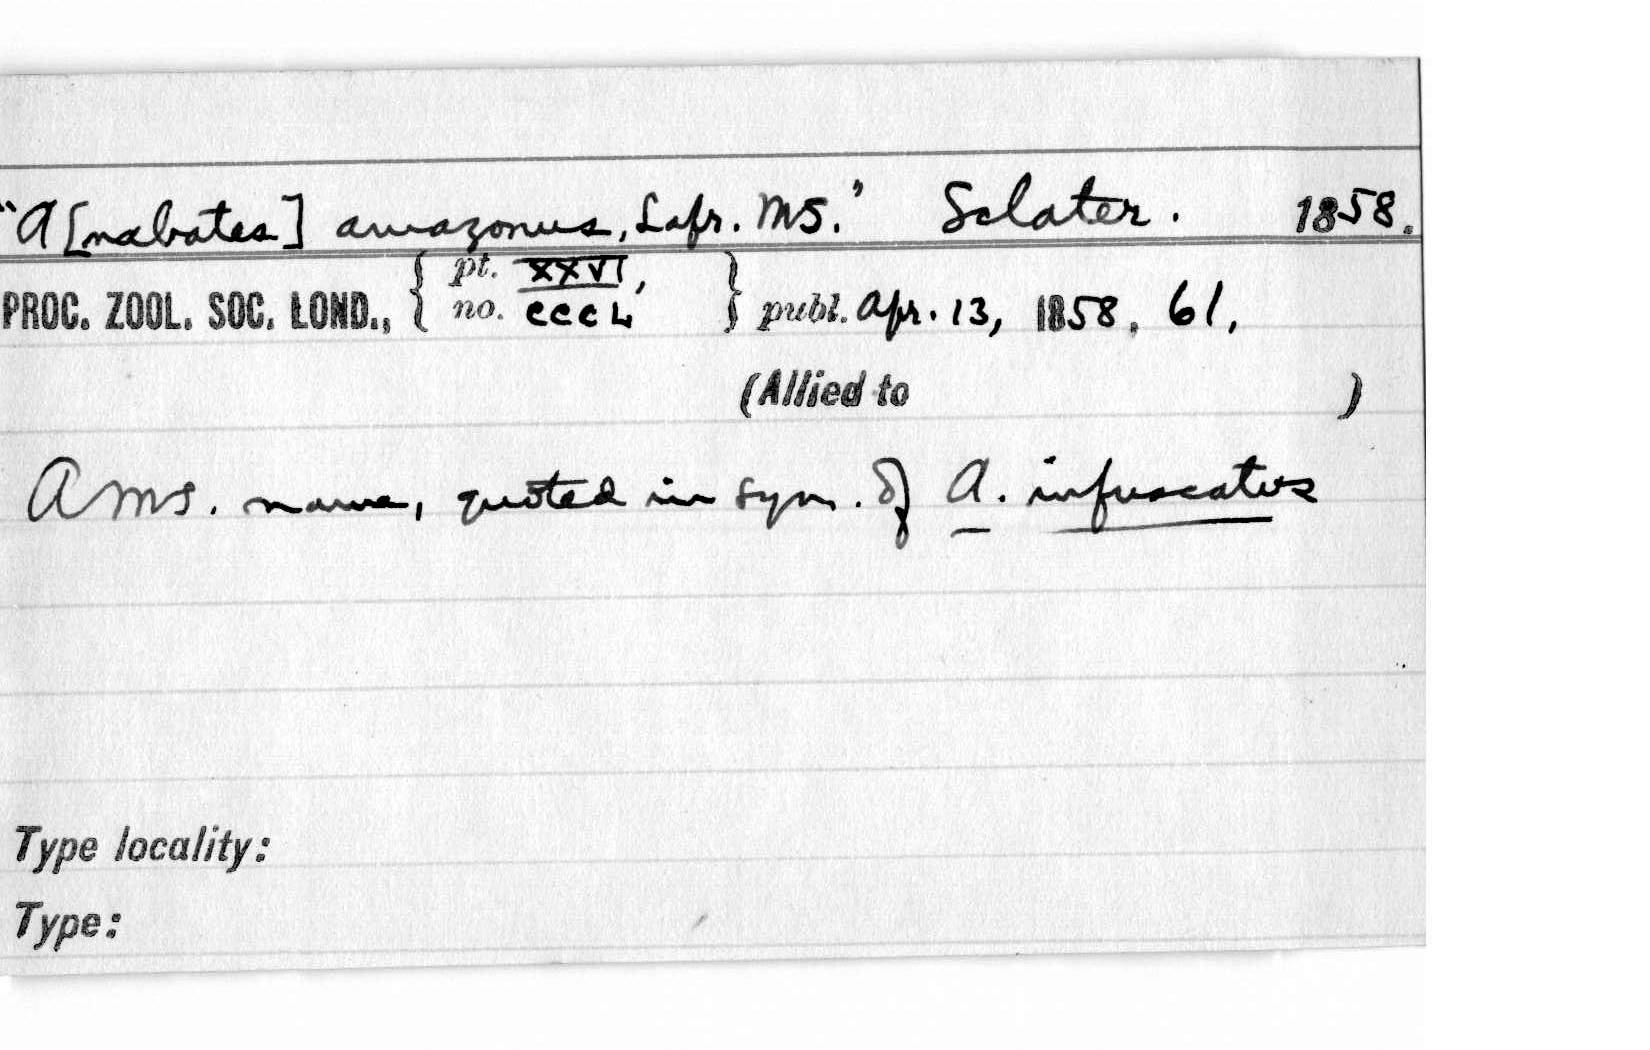 "A[nabates] amazonus, Lafr. MS.' Sclater. 1858.
pt. XXVI,
PROC. ZOOL. SOC. LOND., { no. CCCL } publ. Apr. 13, 1858, 61,
(Allied to )
A MS. name, quoted in syn. of A. infuscatus
Type locality:
Type: